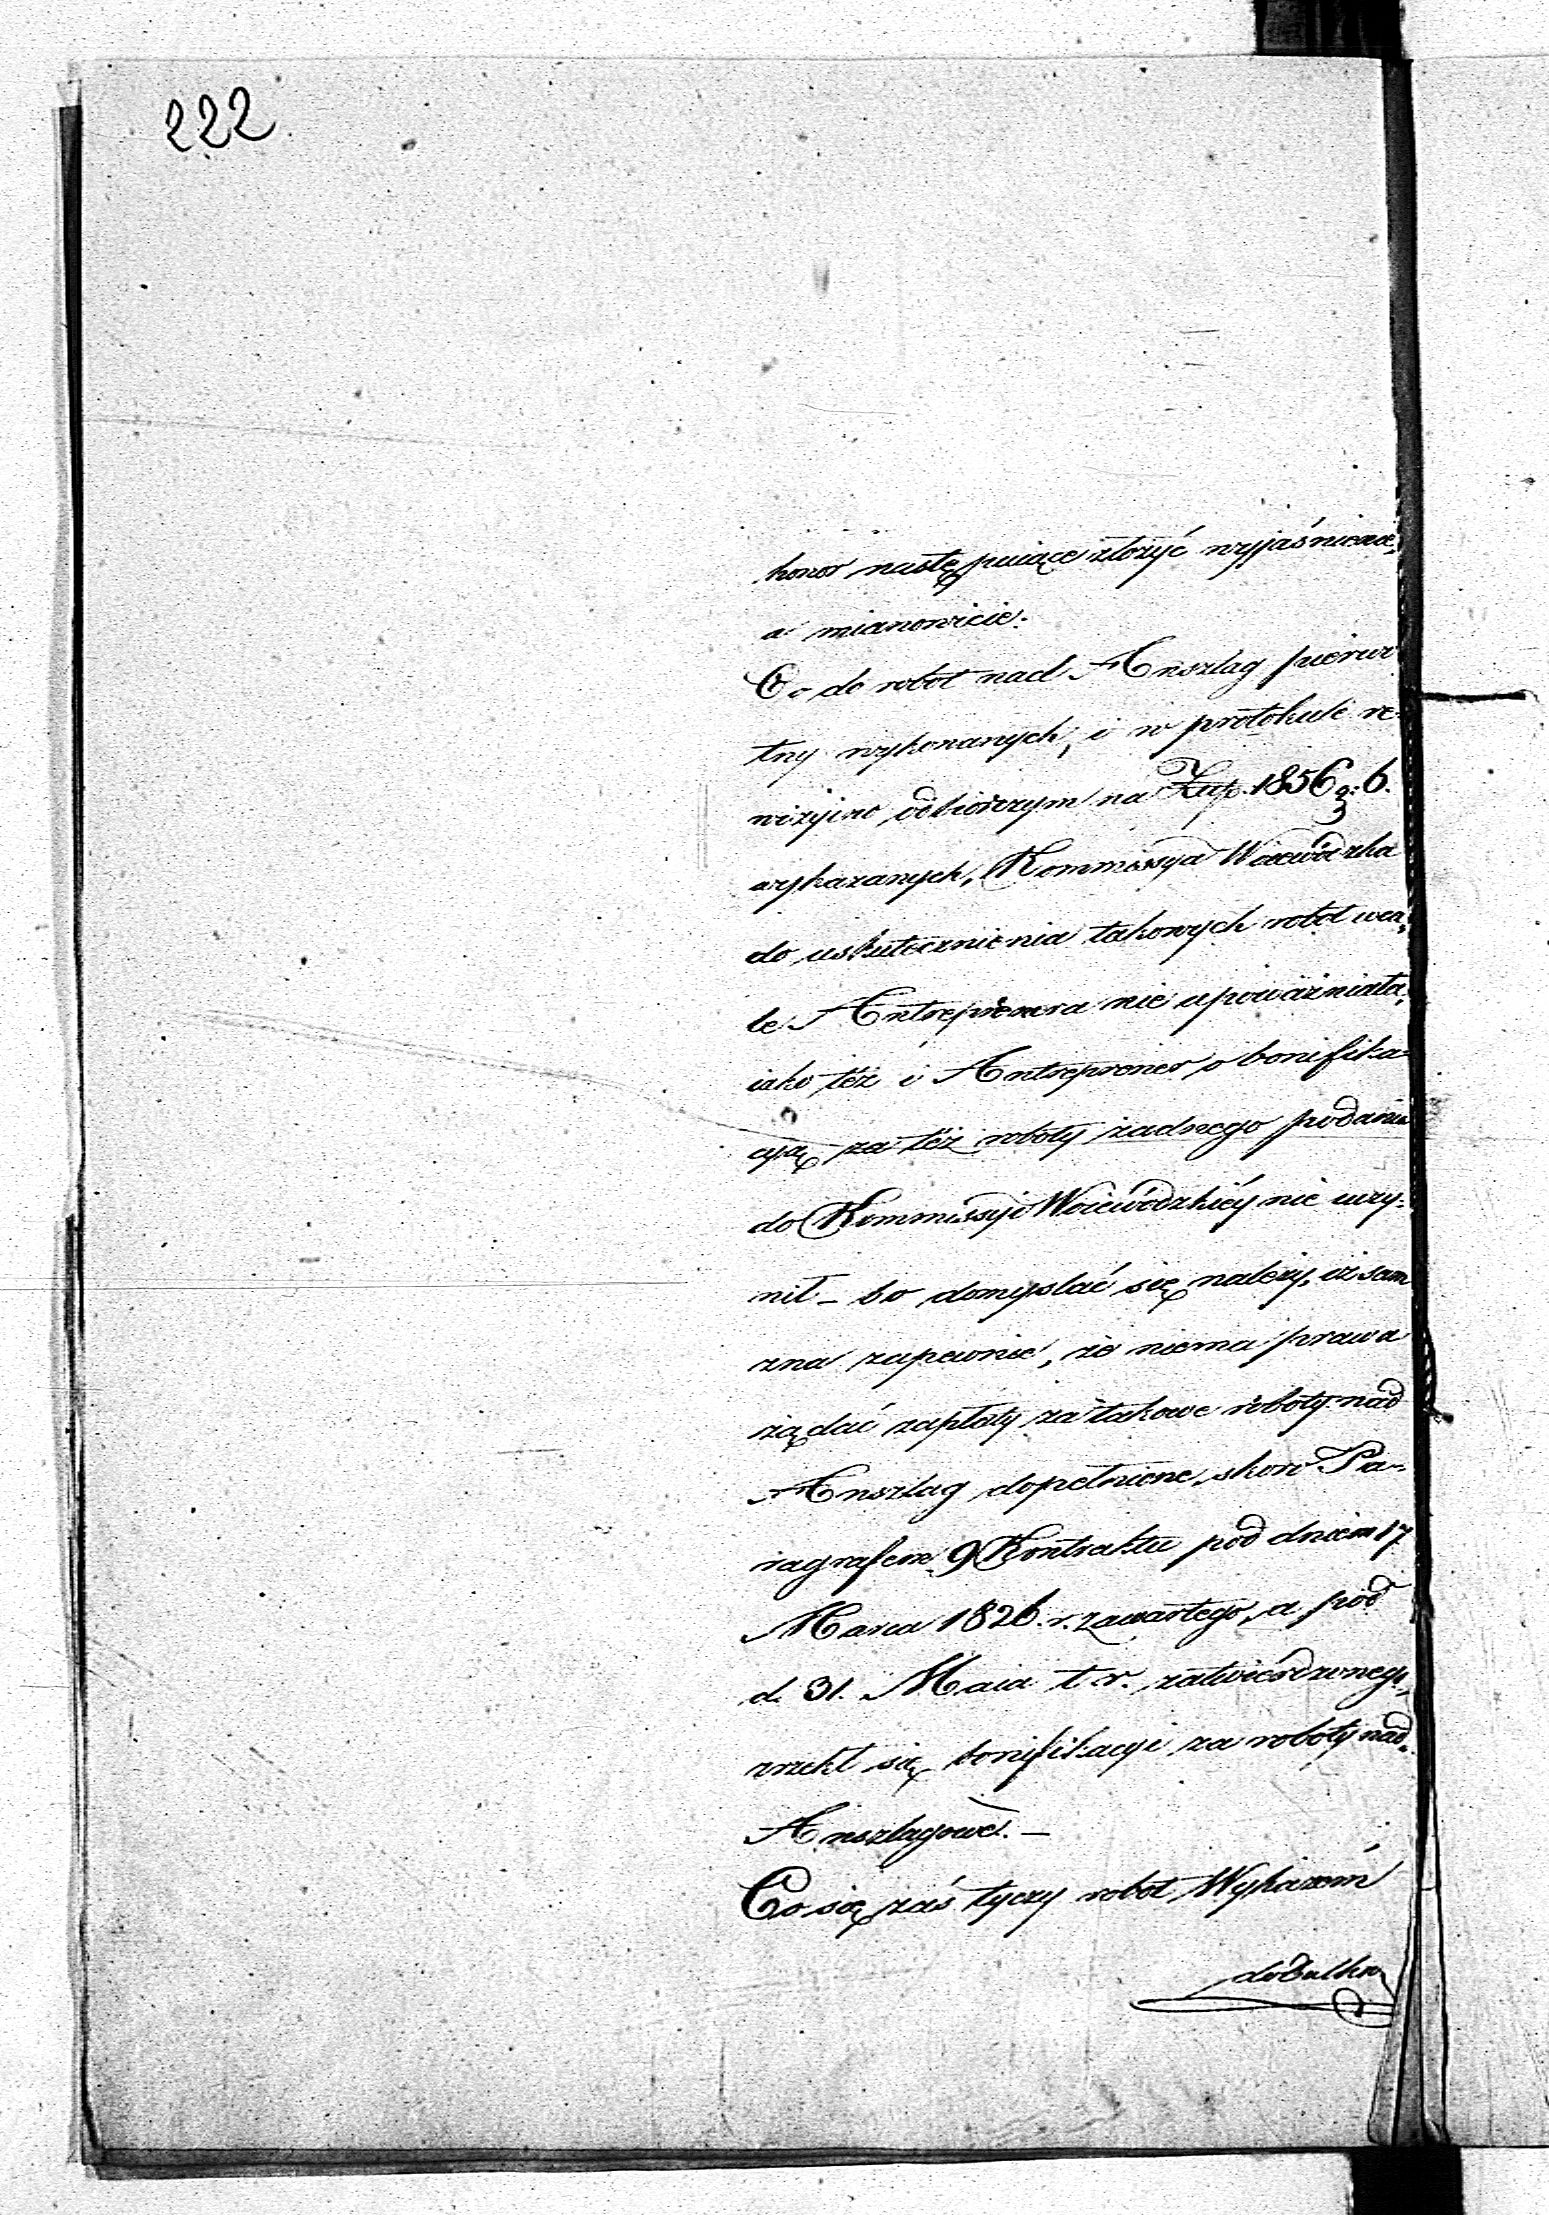 222
honor następuiące złożyć wyjaśnienie,
a mianowicie.
Co do robot nad Anszlag pierwo
tny wykonanych, i w protokule re-
wizyino odbiorczym na Złp. 1856 g: 6.
wykazanych, Kommissya Woiewódzka
do uskutecznienia takowych robot wca-
le Antreprenera nie upoważniała,
iako też i Antreprener o bonifika-
cyą za też roboty żadnego podania
do Kommissyi Woiewódzkiéy nie uczy-
nił – bo domyslać się należy, iż sam
zna zapewnie, że niema prawa
żądać zapłaty za takowe roboty nad
Anszlag dopełnione, skoro Pa-
ragrafem 9 Kontraktu pod dniem 17
Marca 1826. r. zawartego, a pod
d. 31. Maia t. r. zatwierdzonego,
zrzekł się bonifikacyi za roboty nad-
Anszlagowe. –
Co się zaś tyczy robot Wykazem